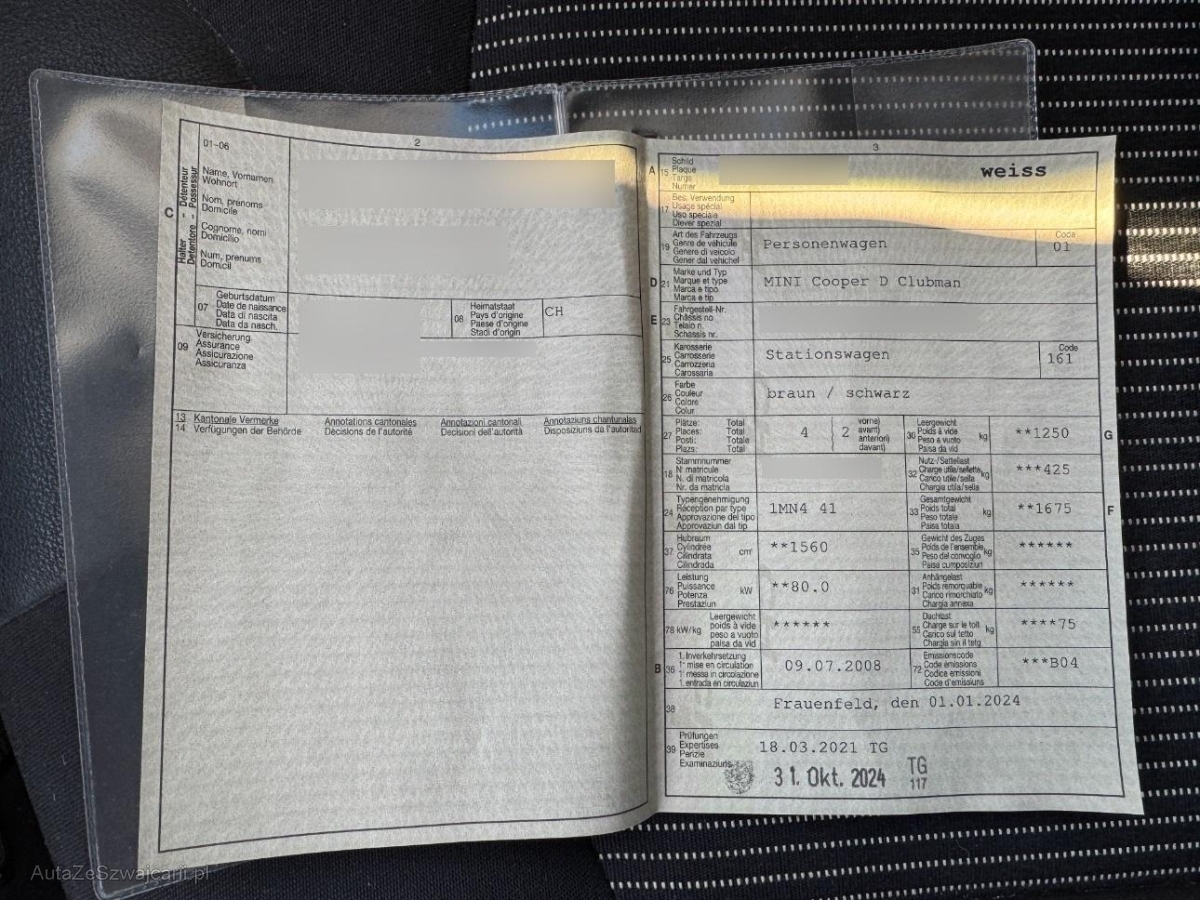 01-06
2
Halter - Détenteur
Detentore - Possessur
C
Name, Vornamen
Wohnort
Nom, prénoms
Domicile
Cognome, nomi
Domicilio
Num, prenums
Domicil
07
Geburtsdatum
Date de naissance
Data di nascita
Data da nasch.
08
Heimatstaat
Pays d'origine
Paese d'origine
Stadi d'origin
CH
09
Versicherung
Assurance
Assicurazione
Assicuranza
13 Kantonale Vermerke Annotations cantonales Annotazioni cantonali Annotaziuns chantunalas
14 Verfügungen der Behörde Décisions de l'autorité Decisioni dell'autorità Disposiziuns da l'autoritad
3
A
15
Schild
Plaque
Targa
Numer
weiss
17
Bes. Verwendung
Usage spécial
Uso speciale
Diever spezial
19
Art des Fahrzeugs
Genre de véhicule
Genere di veicolo
Gener dal vehichel
Personenwagen
Code
01
D
21
Marke und Typ
Marque et type
Marca e tipo
Marca e tip
MINI Cooper D Clubman
E
23
Fahrgestell-Nr.
Châssis no
Telaio n.
Schassis nr.
25
Karosserie
Carrosserie
Carrozzeria
Carossaria
Stationswagen
Code
161
26
Farbe
Couleur
Colore
Colur
braun / schwarz
27
Plätze: Total
Places: Total
Posti: Totale
Plazs: Total
4
2
vorne)
avant)
anteriori)
davant)
30
Leergewicht
Poids à vide
Peso a vuoto
Paisa da vid
kg
**1250
G
18
Stammnummer
N° matricule
N. di matricola
Nr. da matricla
32
Nutz-/Sattellast
Charge utile/sellette
Carico utile/sella
Chargia utila/sella
kg
***425
24
Typengenehmigung
Réception par type
Approvazione del tipo
Approvaziun dal tip
1MN4 41
33
Gesamtgewicht
Poids total
Peso totale
Paisa totala
kg
**1675
F
37
Hubraum
Cylindrée
Cilindrata
Cilindrada
cm³
**1560
35
Gewicht des Zuges
Poids de l'ensemble
Peso del convoglio
Paisa cumposiziun
kg
******
76
Leistung
Puissance
Potenza
Prestaziun
kW
**80.0
31
Anhängelast
Poids remorquable
Carico rimorchiato
Chargia annexa
kg
******
78 kW/kg
Leergewicht
poids à vide
peso a vuoto
paisa da vid
******
55
Dachlast
Charge sur le toit
Carico sul tetto
Chargia sin il tetg
kg
****75
B
36
1. Inverkehrsetzung
1re mise en circulation
1a messa in circolazione
1. entrada en circulaziun
09.07.2008
72
Emissionscode
Code émissions
Codice emissioni
Code d'emissiuns
***B04
38
Frauenfeld, den 01.01.2024
39
Prüfungen
Expertises
Perizie
Examinaziuns
18.03.2021 TG
31. Okt. 2024
TG
117
AutaZeSzwajcarii.pl